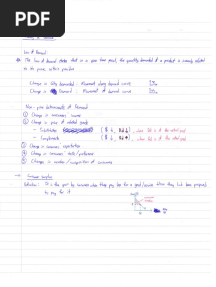 PDF
Law of Demand
The Law of Demand states that in a given time period, the quantity demanded of a product is inversely related
to its price, ceteris paribus
Change in Qty demanded : Movement along demand curve
Change in Demand : Movement of demand curve
Non-price determinants of Demand
① Change in consumers' income
② Change in price of related goods
- Substitutes
- Complements
③ Change in consumers' expectation
④ Change in consumers' taste/preference
⑤ Change in number/composition of consumers
Consumer surplus
Definition: It is the gain by consumers when they pay less for a good/service than they had been prepared
to pay for it